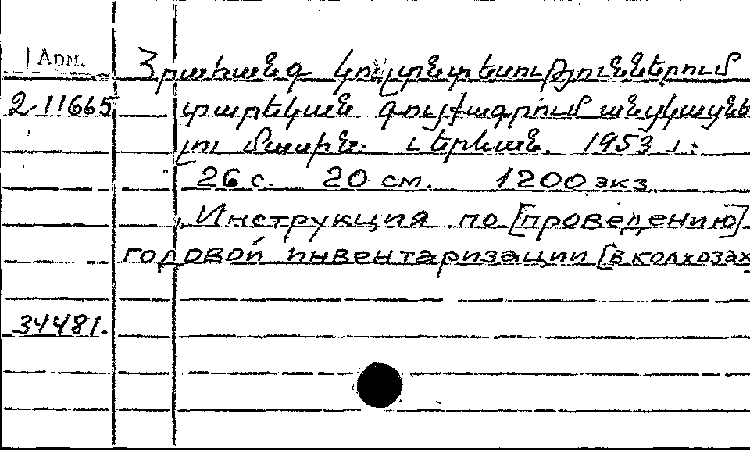 Арм.
2-11665
Հրահանգ կոլտնտեսություններում
տարեկան գույքագրում անցկացնե
լու մասին. Երևան. 1953 թ.
26 с. 20 см. 1200 экз.
Инструкция по [проведению]
годовой инвентаризации [в колхозах
34481.